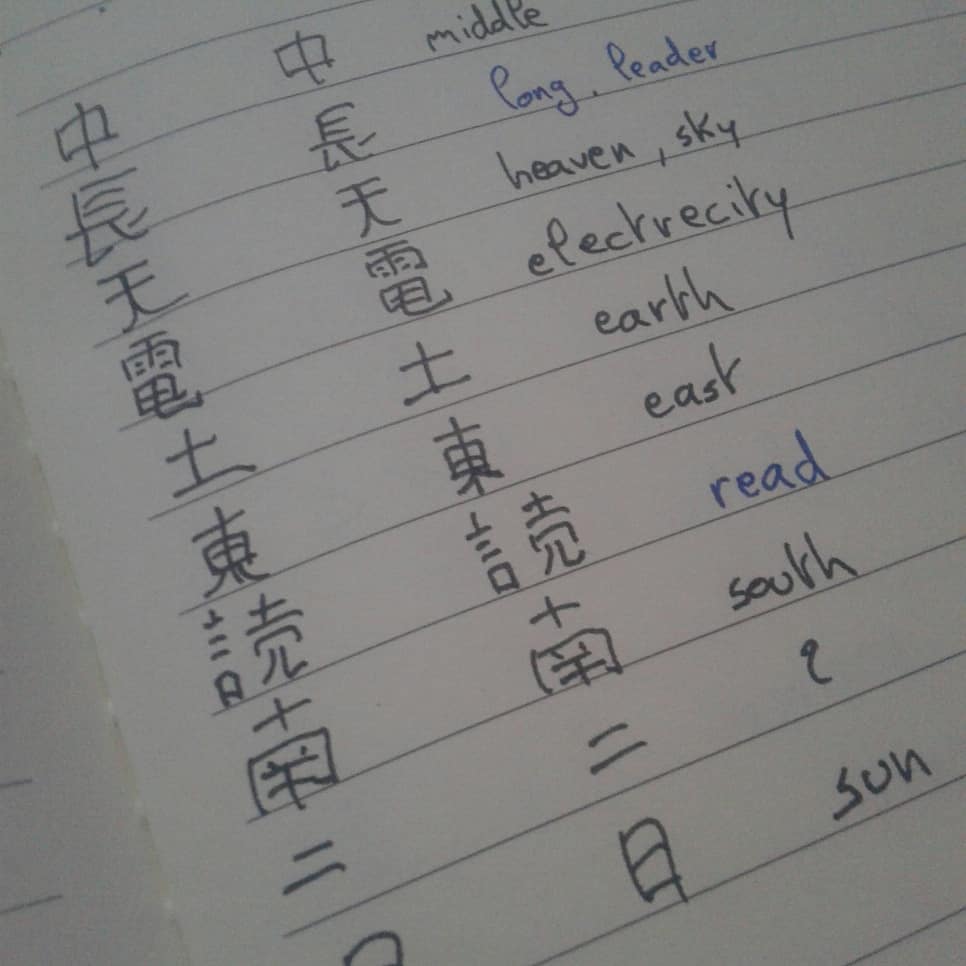 中 中 middle
長 長 long, leader
天 天 heaven, sky
電 電 electrecity
土 土 earth
東 東 east
読 読 read
南 南 south
二 二 2
日 sun